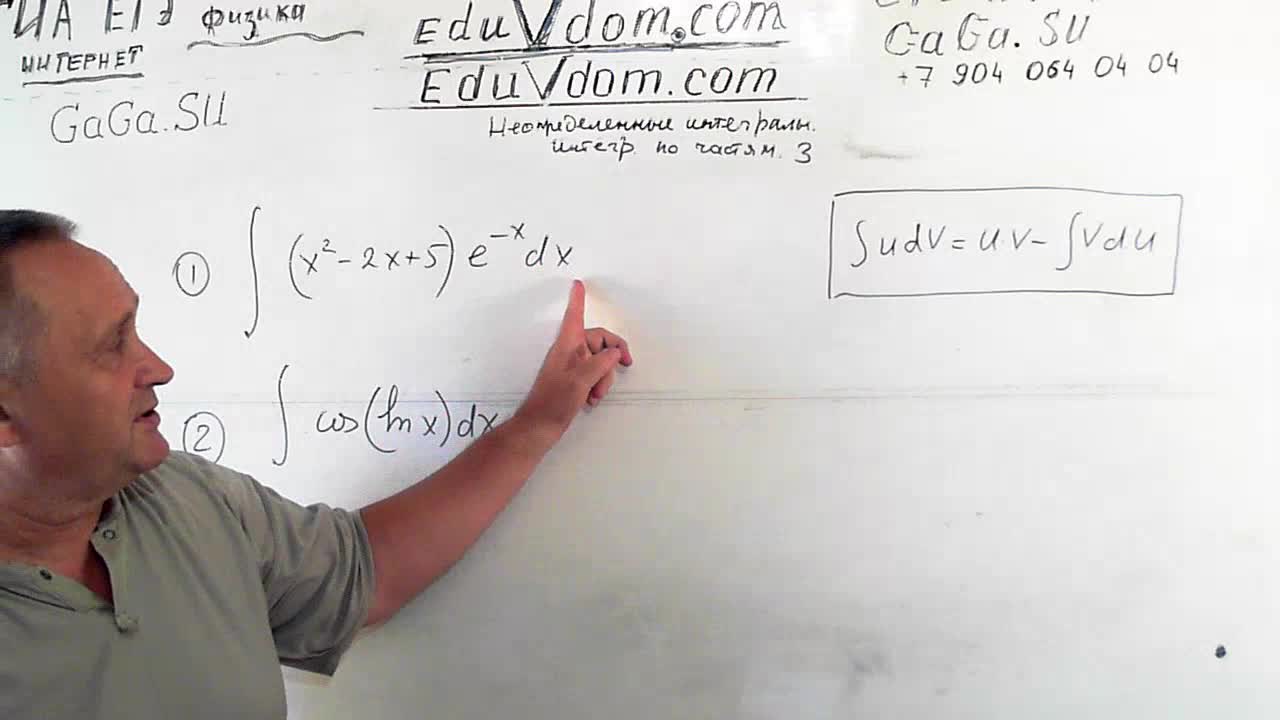 физика
ИНТЕРНЕТ
GaGa.SU
EduVdom.com
EduVdom.com
Неопределенные интегралы.
интегр. по частям. 3
GaGa.SU
+7 904 064 04 04
① ∫ (x² - 2x + 5) e⁻ˣ dx
∫ u dV = u V - ∫ V d u
② ∫ cos(ln x) dx